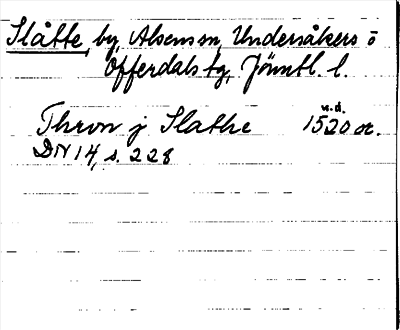 Slåtte, by, Alsens sn, Undersåkers o
Offerdals tg, Jämtl. l.
n.d.
Thron j Slathe 1520 or.
DN 14, s. 228